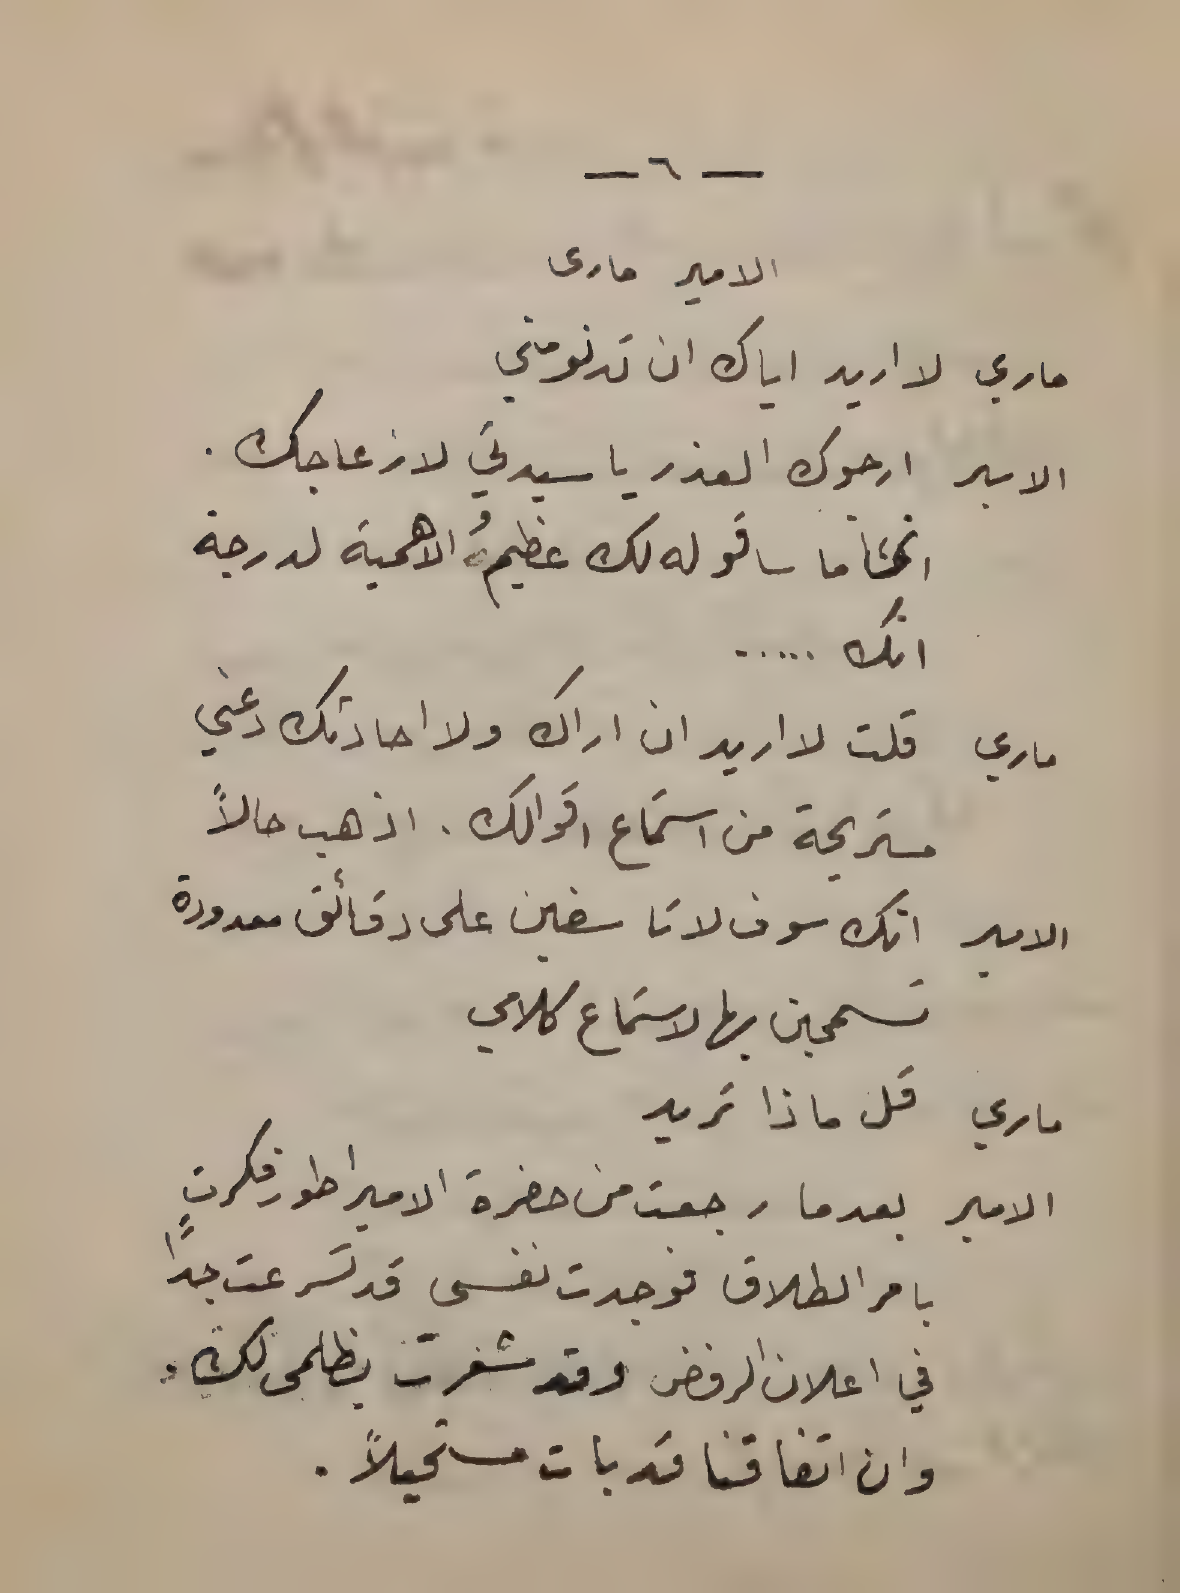 — ٦ —
الامير مارى
ماري لا اريد اياك ان تدنو مني
الامير ارجوك العذر يا سيدتي لازعاجك .
ما ساقوله لك عظيمُ الاهمية لدرجة
انك .....
ماري قلت لا اريد ان اراك ولا احادثك دعني
مستريحة من استماع اقوالك . اذهب حالاً
الامير انك سوف لا تاسفين على دقائق معدودة
تسمحين بها لاستماع كلامي
ماري قل ماذا تريد
الامير بعدما رجعت من حضرة الامبراطور فكرت
بامر الطلاق فوجدت نفسى قد تسرعت جداً
في اعلان الرفض وقد شعرت بظلمى لك .
وان اتفاقنا قد بات مستحيلاً .